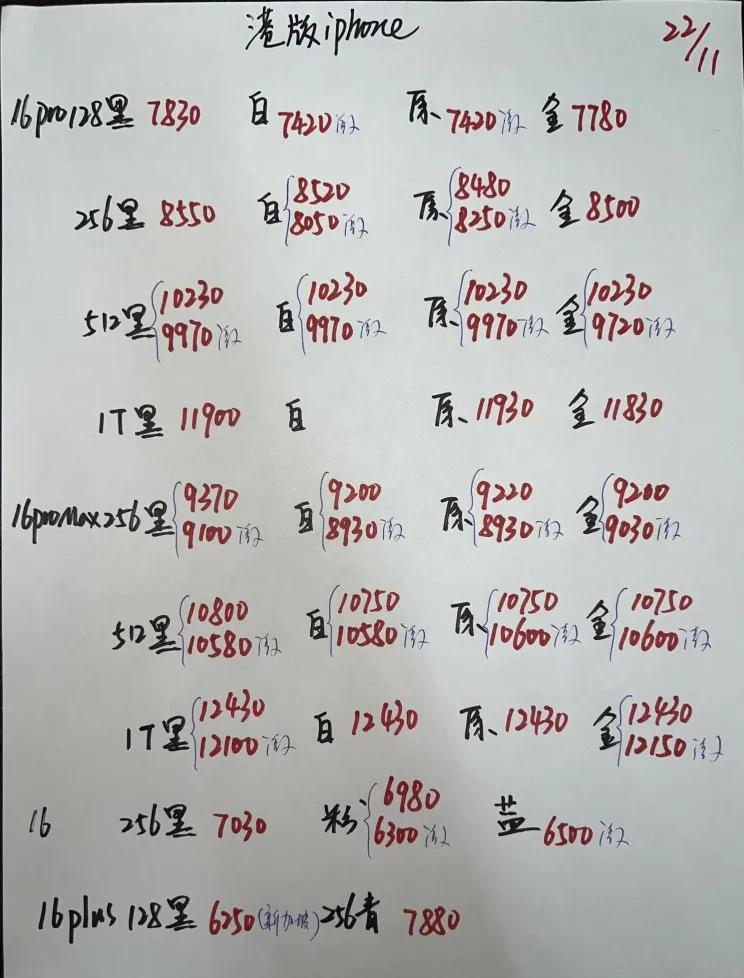 港版iphone 22/11
16pro128黑 7830 白 7420激 原、7420激 金 7780
256黑 8550 白 8520 8050激 原、8480 8250激 金 8500
512黑 10230 9970激 白 10230 9970激 原、10230 9970激 金 10230 9720激
1T黑 11900 白 原、11930 金 11830
16proMax256黑 9370 9100激 白 9200 8930激 原、9220 8930激 金 9200 9030激
512黑 10800 10580激 白 10750 10580激 原、10750 10600激 金 10750 10600激
1T黑 12430 12100激 白 12430 原、12430 金 12430 12150激
16 256黑 7030 粉、6980 6300激 蓝 6500激
16plus 128黑 6250(新加坡) 256青 7880